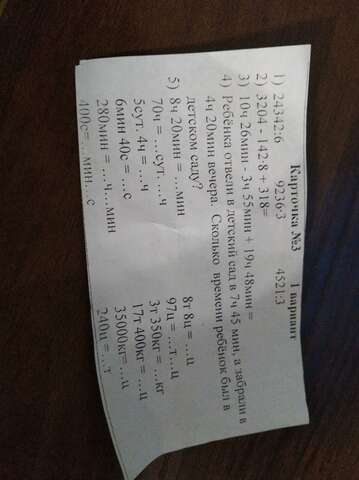 Карточка №3 1 вариант
1) 24342:6 9236·3 4521:3
2) 3204 - 142·8 + 318=
3) 10ч 26мин - 3ч 55мин + 19ч 48мин =
4) Ребёнка отвели в детский сад в 7ч 45 мин, а забрали в
4ч 20мин вечера. Сколько времени ребёнок был в
детском саду?
5) 8ч 20мин = …мин 8т 8ц = …ц
70ч = …сут. …ч 97ц = …т…ц
5сут. 4ч = …ч 3т 350кг= …кг
6мин 40с = …с 17т 400кг = …ц
280мин = …ч…мин 35000кг= …ц
400с= …мин…с 240ц = …т